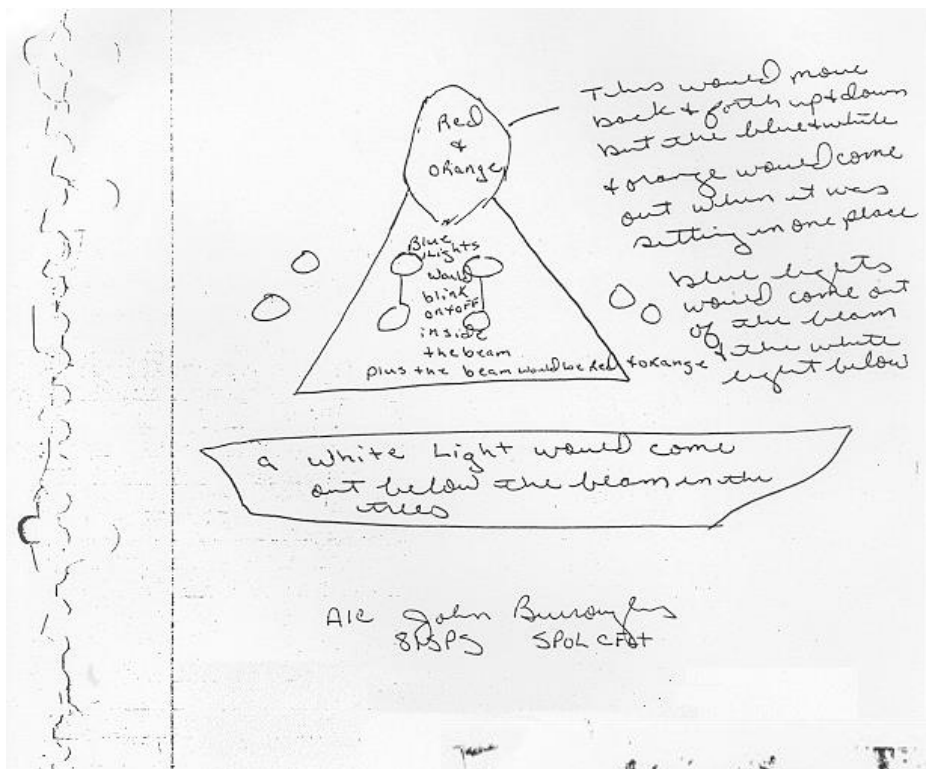 Red
+
ORange
This would move
back + forth up + down
but the blue + white
+ orange would come
out when it was
sitting in one place
Blue
Lights
would
blink
on + off
inside
the beam
plus the beam would be Red + ORange
blue lights
would come out
of the beam
+ the white
light below
a white Light would come
out below the beam in the
trees
A1C John Burroughs
81SPS